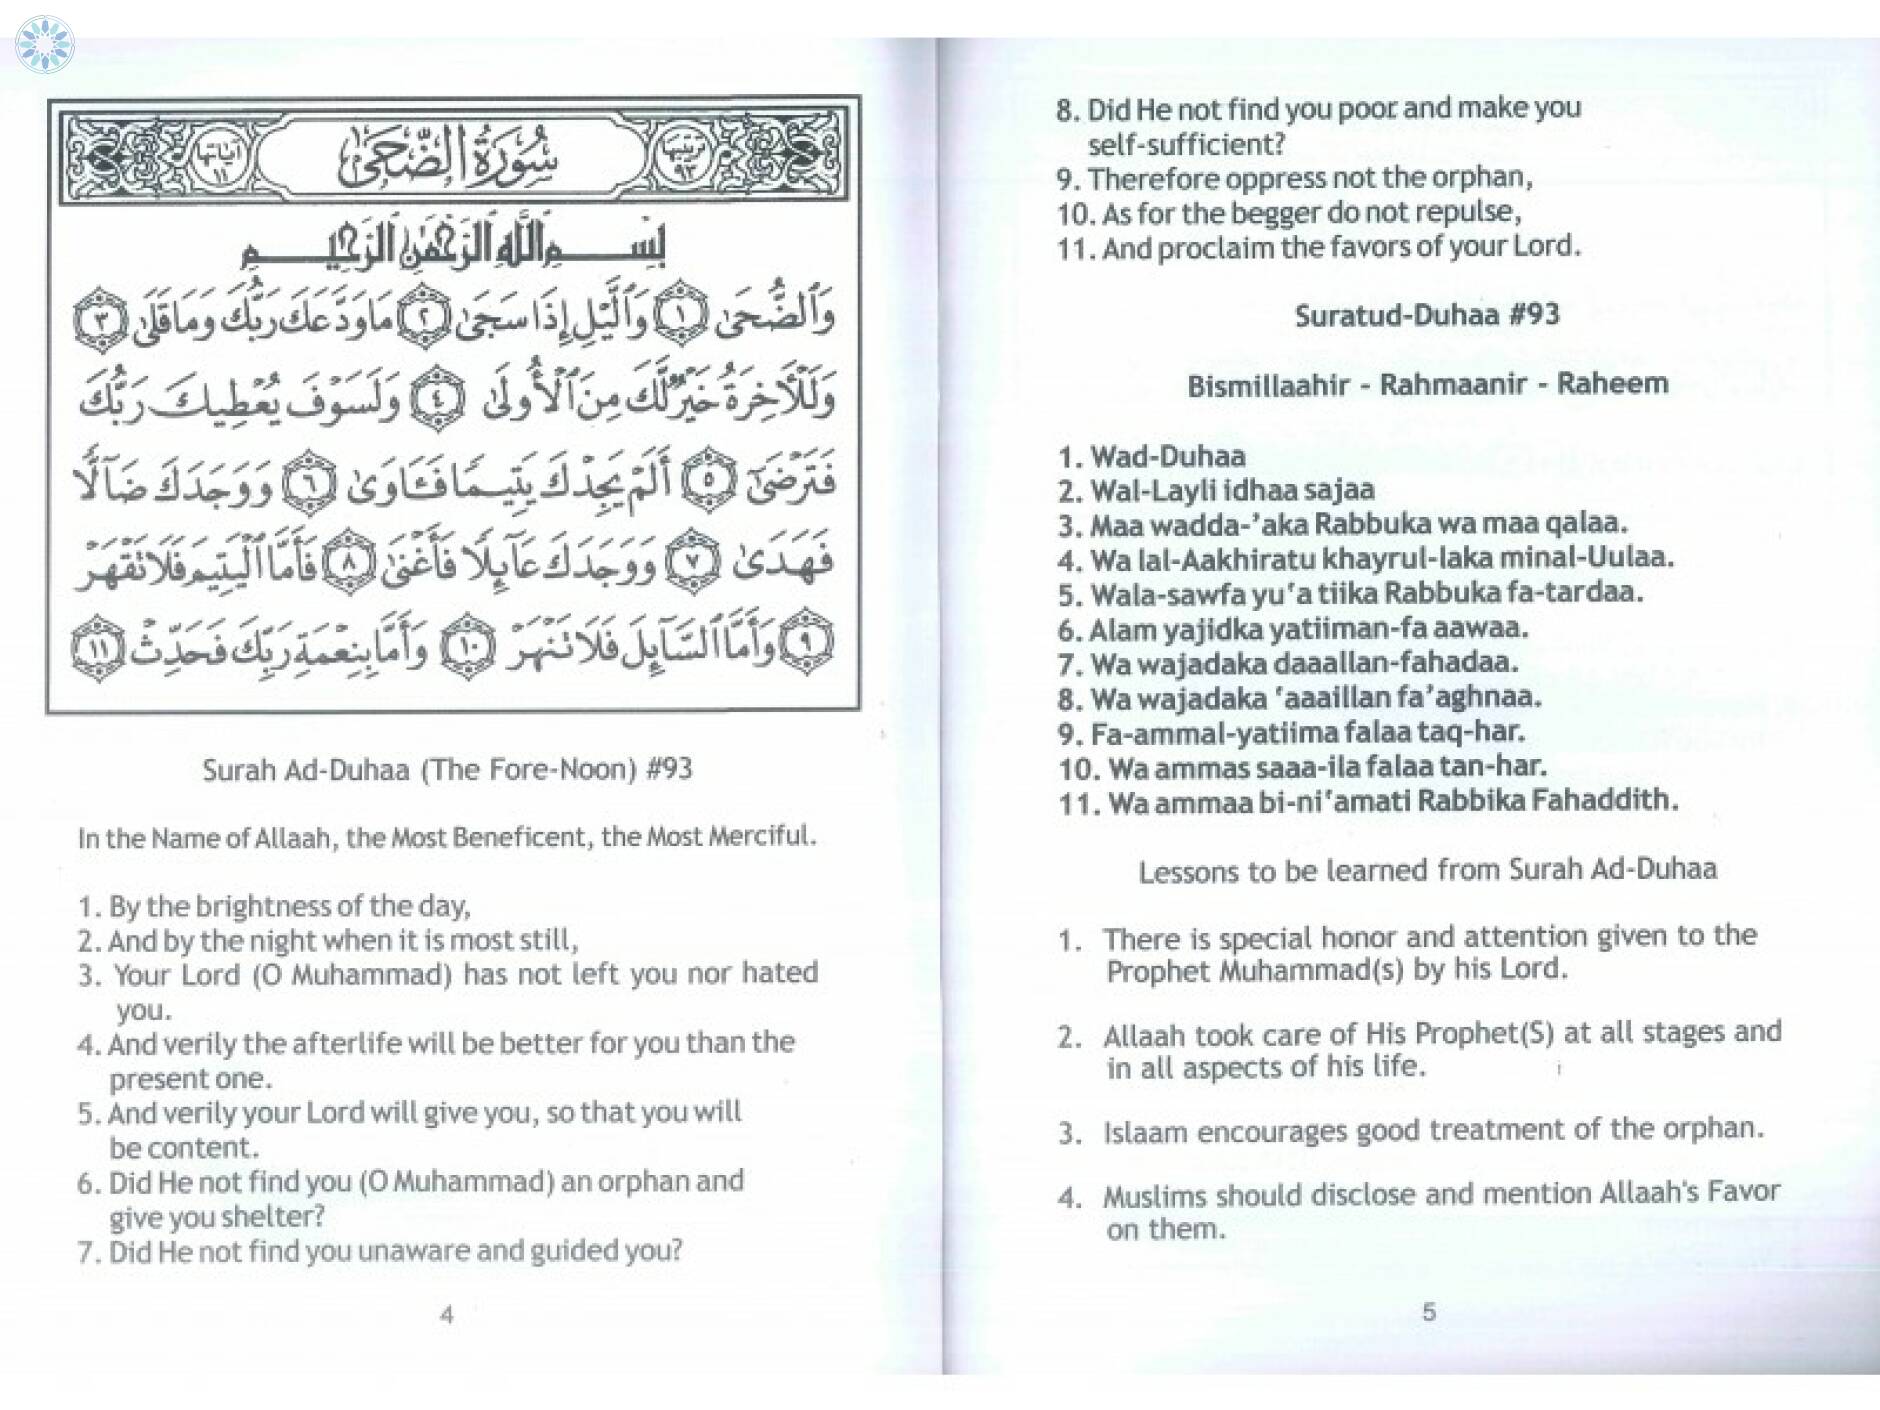 آياتها ١١
سُورَةُ الضُّحَىٰ
ترتيبها ٩٣
بِسْمِ اللَّهِ الرَّحْمَٰنِ الرَّحِيمِ
وَٱلضُّحَىٰ ١ وَٱلَّيْلِ إِذَا سَجَىٰ ٢ مَا وَدَّعَكَ رَبُّكَ وَمَا قَلَىٰ ٣
وَلَلْأَخِرَةُ خَيْرٌ لَّكَ مِنَ ٱلْأُولَىٰ ٤ وَلَسَوْفَ يُعْطِيكَ رَبُّكَ
فَتَرْضَىٰٓ ٥ أَلَمْ يَجِدْكَ يَتِيمًا فَـَٔاوَىٰ ٦ وَوَجَدَكَ ضَآلًّا
فَهَدَىٰ ٧ وَوَجَدَكَ عَآئِلًا فَأَغْنَىٰ ٨ فَأَمَّا ٱلْيَتِيمَ فَلَا تَقْهَرْ
٩ وَأَمَّا ٱلسَّآئِلَ فَلَا تَنْهَرْ ١٠ وَأَمَّا بِنِعْمَةِ رَبِّكَ فَحَدِّثْ ١١
Surah Ad-Duhaa (The Fore-Noon) #93
In the Name of Allaah, the Most Beneficent, the Most Merciful.
1. By the brightness of the day,
2. And by the night when it is most still,
3. Your Lord (O Muhammad) has not left you nor hated
you.
4. And verily the afterlife will be better for you than the
present one.
5. And verily your Lord will give you, so that you will
be content.
6. Did He not find you (O Muhammad) an orphan and
give you shelter?
7. Did He not find you unaware and guided you?
4
8. Did He not find you poor and make you
self-sufficient?
9. Therefore oppress not the orphan,
10. As for the begger do not repulse,
11. And proclaim the favors of your Lord.
Suratud-Duhaa #93
Bismillaahir - Rahmaanir - Raheem
1. Wad-Duhaa
2. Wal-Layli idhaa sajaa
3. Maa wadda-’aka Rabbuka wa maa qalaa.
4. Wa lal-Aakhiratu khayrul-laka minal-Uulaa.
5. Wala-sawfa yu‘a tiika Rabbuka fa-tardaa.
6. Alam yajidka yatiiman-fa aawaa.
7. Wa wajadaka daaallan-fahadaa.
8. Wa wajadaka ‘aaaillan fa’aghnaa.
9. Fa-ammal-yatiima falaa taq-har.
10. Wa ammas saaa-ila falaa tan-har.
11. Wa ammaa bi-ni‘amati Rabbika Fahaddith.
Lessons to be learned from Surah Ad-Duhaa
1. There is special honor and attention given to the
Prophet Muhammad(s) by his Lord.
2. Allaah took care of His Prophet(S) at all stages and
in all aspects of his life.
3. Islaam encourages good treatment of the orphan.
4. Muslims should disclose and mention Allaah's Favor
on them.
5